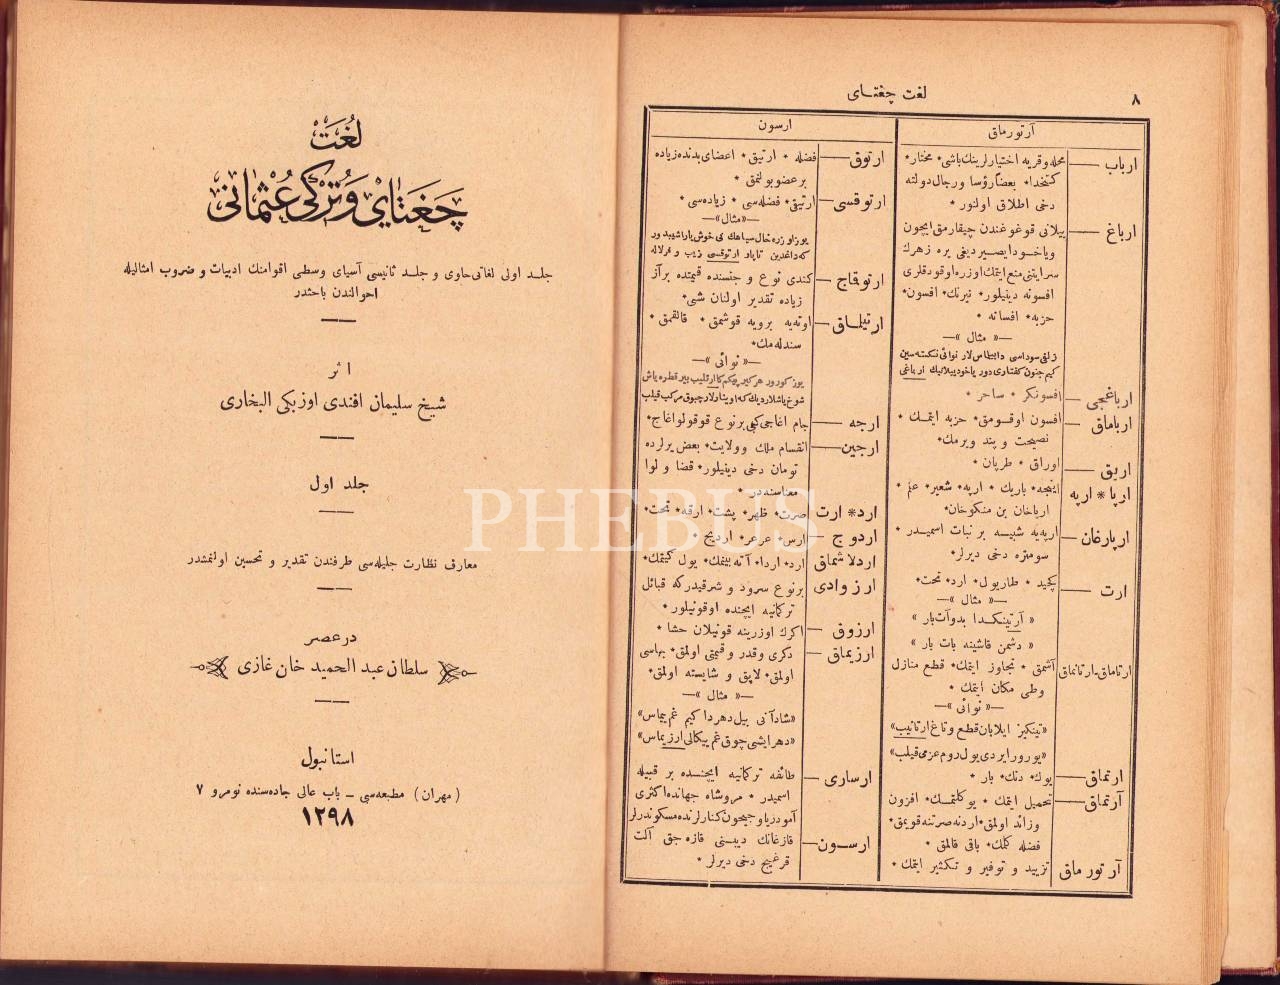 لُغَتْ
چَغَتَاىْ وَ تُرْكِىِّ عُثْمَانِى
جلد اولى لغاتى حاوى و جلد ثانيسى آسياى وسطى اقوامنك ادبيات و ضروب امثاليله
احوالندن باحثدر
اثر
شيخ سليمان افندى اوزبكى البخارى
جلد اول
معارف نظارت جليله‌سى طرفندن تقدير و تحسين اولنمشدر
در عصر
سلطان عبد الحميد خان غازى
استانبول
(مهران) مطبعه‌سى ــ باب عالى جاده‌سنده نومرو ٧
١٢٩٨
٨
لغت چغتاى
آرتورماق
ارباب — محله و قريه اختيارلرينك باشى * مختار *
كتخدا * بعضا رؤسا و رجال دولته
دخى اطلاق اولنور *
ارباغ — ييلانى قوغوغندن چيقارمق ايچون
وياخود ايصيرديغى يره زهرك
سرايتنى منع ايتمك اوزره اوقودقلرى
افسونه دينيلور * نيرنك * افسون *
حزبه * افسانه *
—« مثال »—
ارباغچى — افسونكر * ساحر *
ارباماق — افسون اوقومق * حزبه ايتمك *
نصيحت و پند ويرمك *
اربق — اوراق * طرپان *
ارپا * ارپه — اينجه * باريك * ارپه * شعير * علم *
ارپاخان بن منكوخان *
ارپارغان — ارپه‌يه شبيه بر نبات اسميدر *
سومتره دخى ديرلر *
ارت — كچيد * طاريول * ارد * تحت *
—« مثال »—
« آرتينكدا بدوآت بار »
« دشمن قاشينه يات بار »
ارتاماق ـ ارتانماق آشمق * تجاوز ايتمك * قطع منازل
وطى مكان ايتمك *
—« نوائى »—
«تينكيز ايلابان قطع و تاغ ارتانيب»
«يورور ايردى يول روم عزمى قيلب»
ارتماق — يوك * دنك * بار *
آرتماق — تحميل ايتمك * يوكلتمك * افزون
وزائد اولمق * اردنه صرتنه قويمق *
فضله كلمك * باقى قالمق *
آرتورماق تزييد و توفير و تكثير ايتمك *
ارسون
ارتوق — فضله * ارتيق * اعضاى بدنده زياده
بر عضو بولنمق *
ارتوقسى — ارتيق * فضله‌سى * زياده‌سى *
—« مثال »—
ارتوقاج — كندى نوع و جنسنده قيمتده برآز
زياده تقدير اولنان شى *
ارتيلماق — اوته‌يه برويه قوشمق * قالقمق *
سندله‌مك *
—« نوائى »—
ارجه — جام اغاجى كبى برنوع قوقولو اغاج *
ارجين — انقسام ملك و ولايت * بعض يرلرده
تومان دخى دينيلور * قضا و لوا
معناسنه در *
ارد * ارت صرت * ظهر * پشت * ارقه * تحت *
اردوج — ارس * عرعر * ارديج *
اردلاشماق ارد * اردا * آته بيتمك * يول كيتمك *
ارزوادى برنوع سرود و شرقيدركه قبائل
تركمانيه ايچنده اوقونيلور *
ارزوق — اكرك اوزرينه قونيلان حشا *
ارزيماق — دكرى و قدر و قيمتى اولمق * بهاسى
اولمق * لايق و شايسته اولمق *
—« مثال »—
«شادآنى بيل دهردا كيم غم ييماس»
«دهر ايشى چوق غم ييكالى ارزيماس»
ارسارى — طائفه تركمانيه ايچنده بر قبيله
اسميدر * مروشاه جهانده اكثرى
آمودريا و جيحون كنارلرنده مسكوندرلر
ارسون — قازغانك ديبنى قازه‌جق آلت
قرغيج دخى ديرلر *
PHEBUS